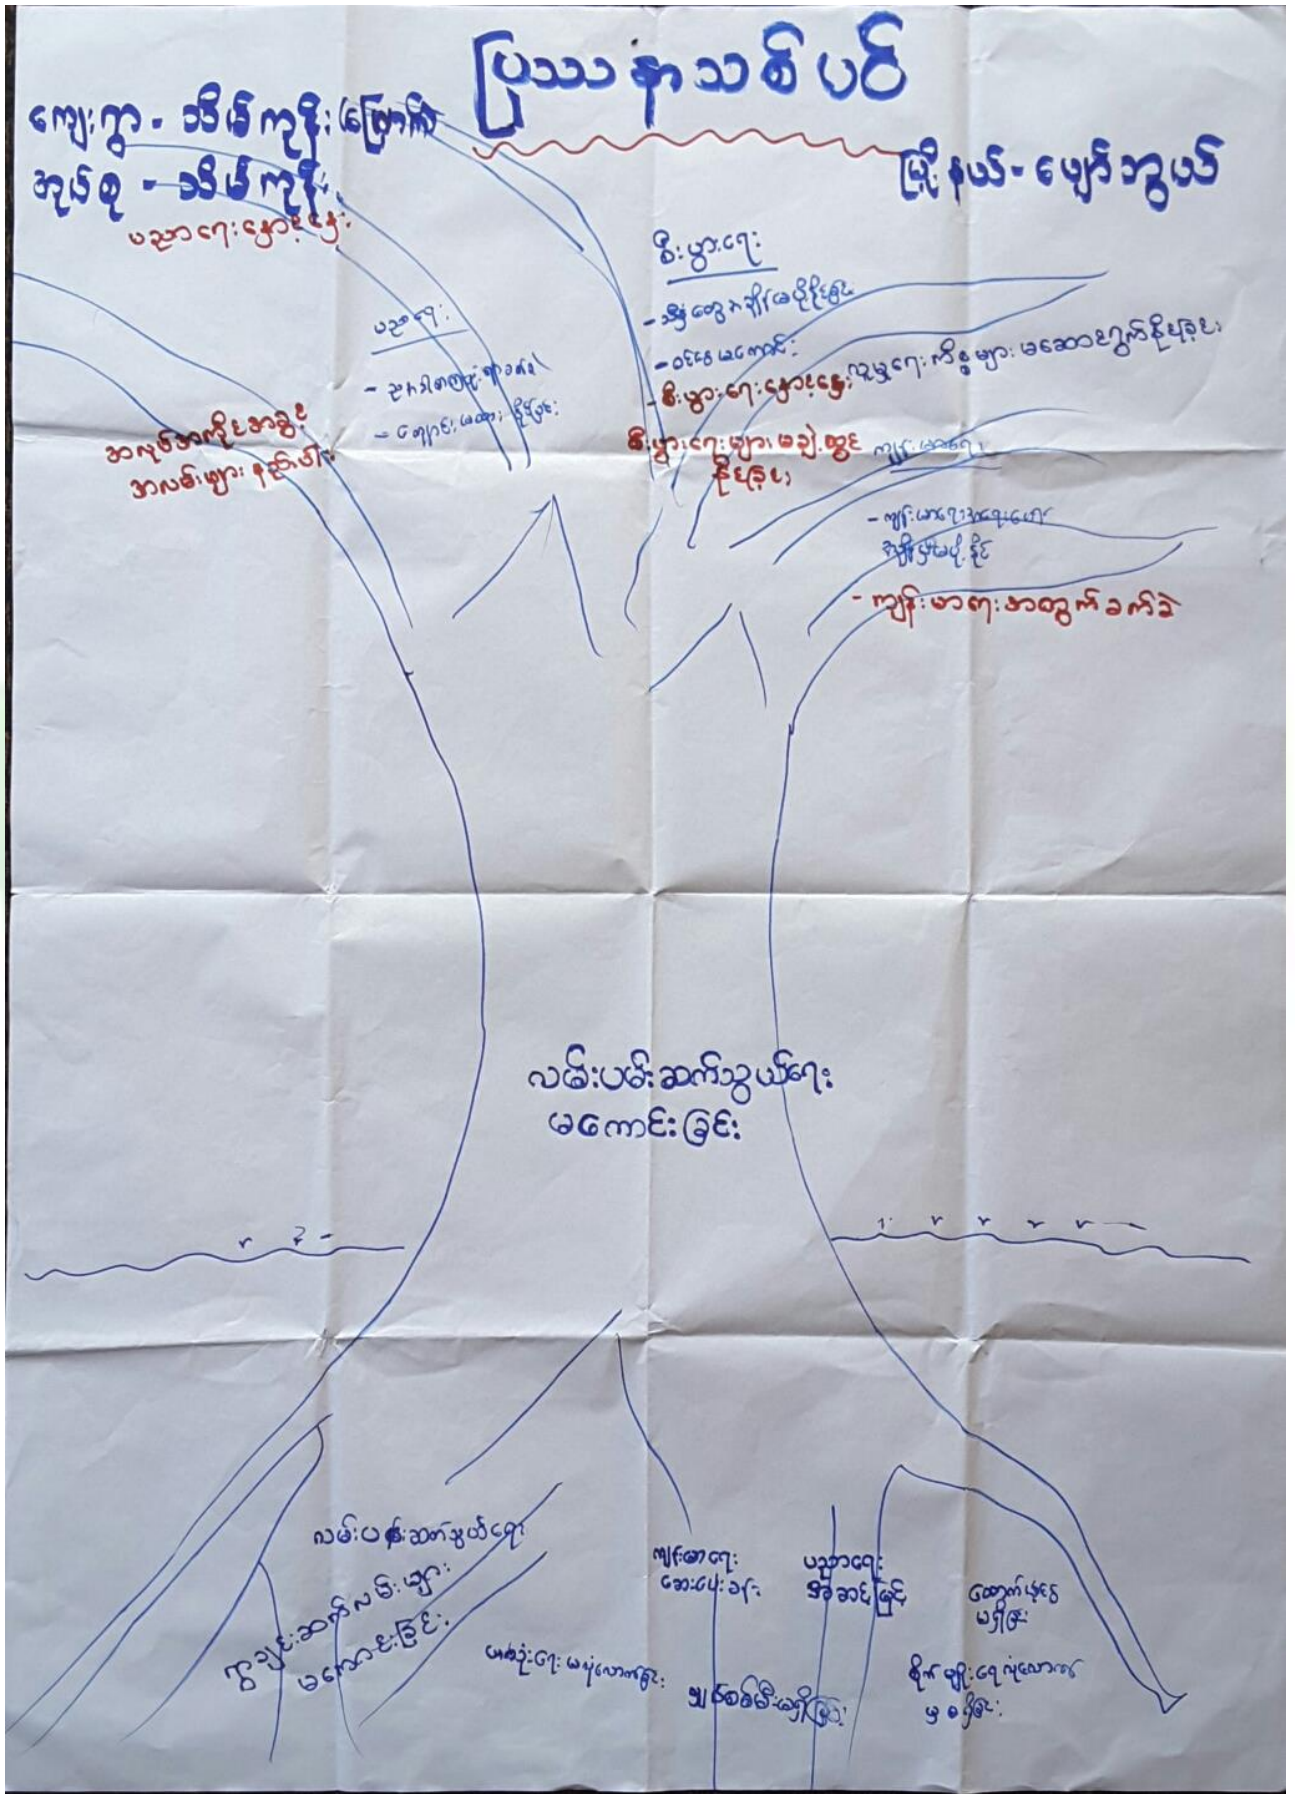 ပြဿနာသစ်ပင်
ကျေးရွာ - သိမ်ကုန်း (မြောက်)
အုပ်စု - သိမ်ကုန်း
မြို့နယ် - ပျော်ဘွယ်
ပညာရေးနှောင့်နှေး
ပညာရေး
- ကျောင်းမထားနိုင်ခြင်း
အလုပ်အကိုင်အခွင့်
အလမ်းများ နည်းပါး
စီးပွားရေး
- သီးနှံတွေအချိန်မပို့နိုင်ခြင်း
- ဝင်ငွေမကောင်း
- စီးပွားရေးနှောင့်နှေး
လူမှုရေးကိစ္စများ မဆောင်ရွက်နိုင်ခြင်း
စီးပွားရေးများ မချဲ့ထွင်
နိုင်ခြင်း
ကျန်းမာရေး
- ကျန်းမာရေးအရေးပေါ်
အချိန်မှီမပို့နိုင်
- ကျန်းမာရေးအတွက်ခက်ခဲ
လမ်းပမ်းဆက်သွယ်ရေး
မကောင်းခြင်း
လမ်းပန်းဆက်သွယ်ရေး
ရွာချင်းဆက်လမ်းများ
မကောင်းခြင်း
ကျန်းမာရေး
ဆေးပေးခန်း
ပညာရေး
အဆင့်မြင့်
ထောက်ပံ့ငွေ
မရှိခြင်း
မလုံလောက်ခြင်း
လျှပ်စစ်မီးမရှိခြင်း
စိုက်ပျိုးရေလုံလောက်
မှုမရှိခြင်း